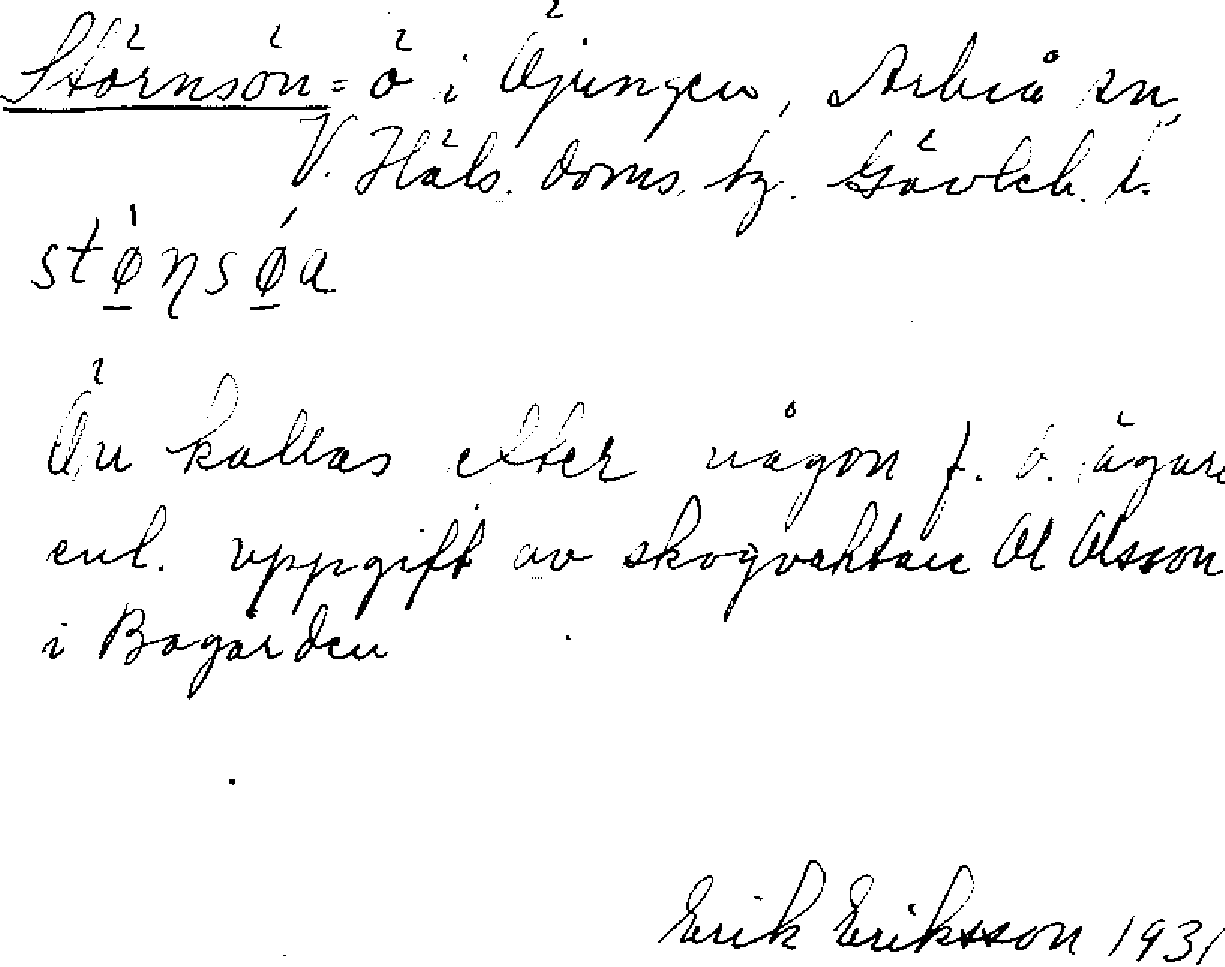 Störnsön = ö i Öjungen, Arbrå sn,
V. Häls. doms. tg. Gävleb. l.
stø̱ṇsø̱a
Ön kallas efter någon f. d. ägare
enl. uppgift av skogvaktare Ol Olsson
i Bogården
Erik Eriksson 1931